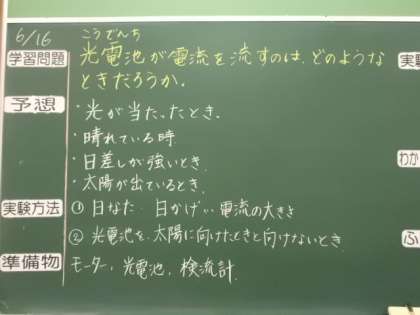 6/16
こうでんち
学習問題 光電池が電流を流すのは、どのような
ときだろうか。
予想 ・光が当たったとき.
・晴れている時
・日差しが強いとき.
・太陽が出ているとき.
実験方法 ① 日なた 日かげ… 電流の大きさ
② 光電池を、太陽に向けたときと向けないとき.
準備物 モーター, 光電池, 検流計.
実
わか
ふ